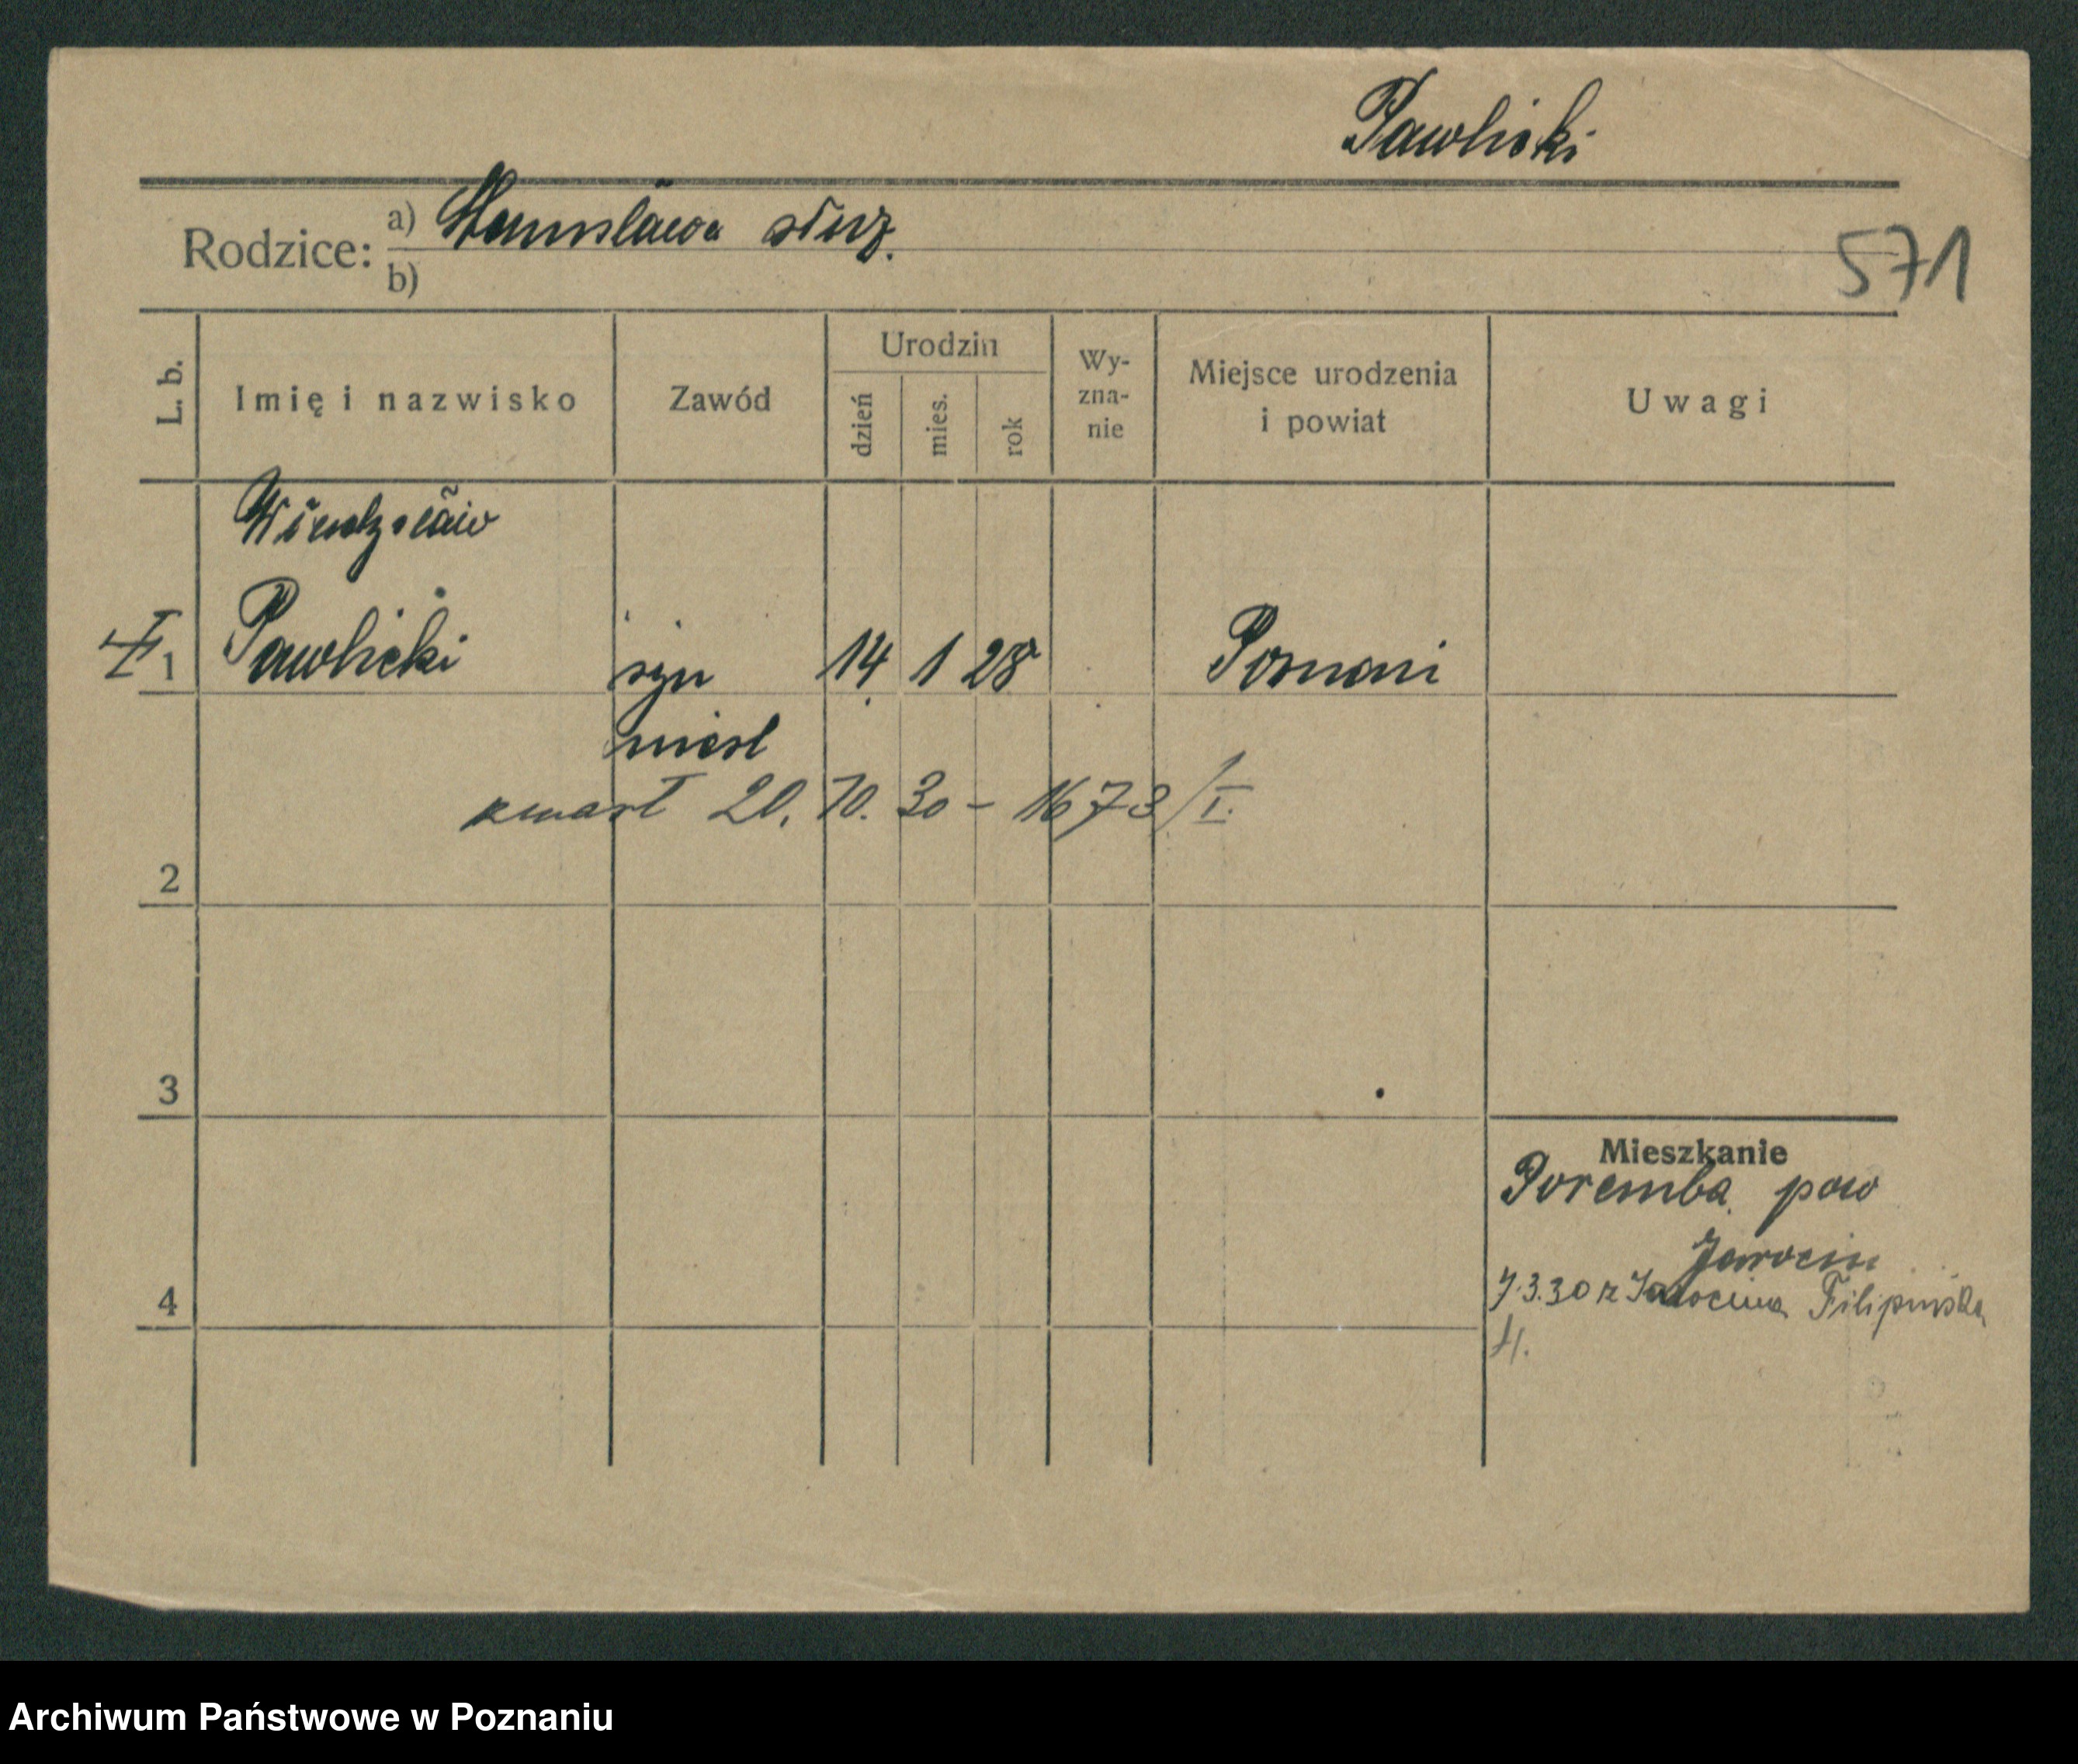 Pawlicki
Rodzice: a) Stanisława służ.
b)
571
L. b.
Imię i nazwisko
Zawód
Urodzin
dzień
mies.
rok
Wy-
zna-
nie
Miejsce urodzenia
i powiat
Uwagi
1 Pawlicki syn 14 1 28 Poznań
zmarł 20. 10. 30 – 1673/I.
2
3
Mieszkanie
Poremba pow
Jarocin
7.3.30 z Jarocina Filipińska
4
Archiwum Państwowe w Poznaniu